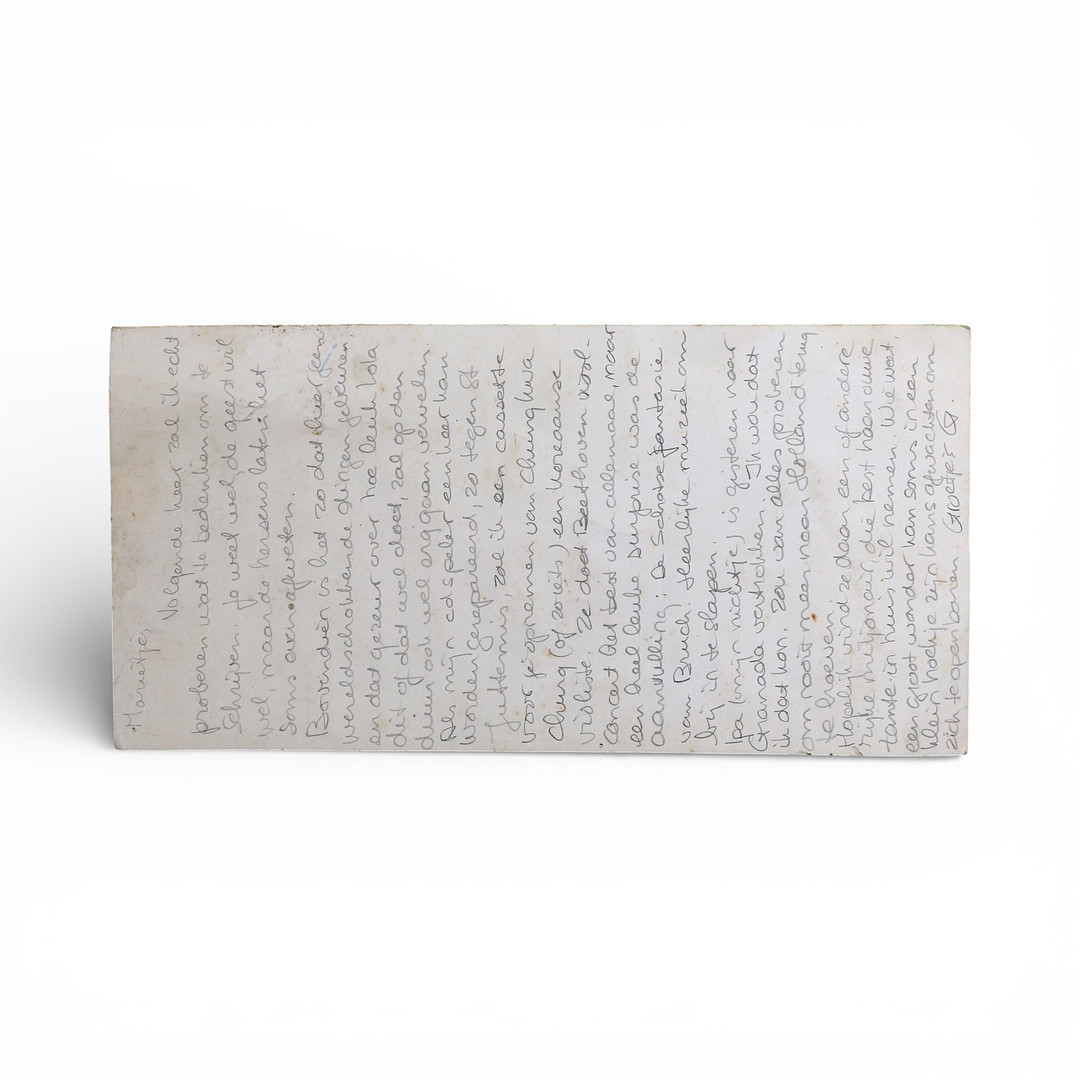 Marietje,
Volgende keer zal ik echt
proberen wat te bedenken om te
schrijven. Je weet wel, de geest wil
wel, maar de hersens laten het
soms even afweten.
Bovendien is het zo dat hier geen
wereldschokkende dingen gebeuren,
en dat gezeur over hoe leuk Lola
dit of dat wel doet, zal op den
duur ook wel erg gaan vervelen.
Als mijn cd speler een keer kan
worden gerepareerd, zo tegen St
Juttemis, zal ik een cassette
voor je opnemen van Chung Kwa
Chung (of zoiets) een Koreaanse
violiste. Ze doet Beethoven viool-
concert het best van allemaal, maar
een heel leuke surprise was de
aanvulling: De Schotse fantasie
van Bruch. Heerlijke muziek om
bij in te slapen.
Ipa (mijn nichtje) is gisteren naar
Granada vertrokken. Ik wou dat
ik dat kon. Zou van alles proberen
om nooit meer naar Holland terug
te hoeven.
Hopelijk vind ze daar een of andere
rijke miljonair, die best haar ouwe
tante in huis wil nemen. Wie weet,
een groot wonder kan soms in een
klein hoekje zijn kans afwachten om
zich te openbaren. Groetjes G.